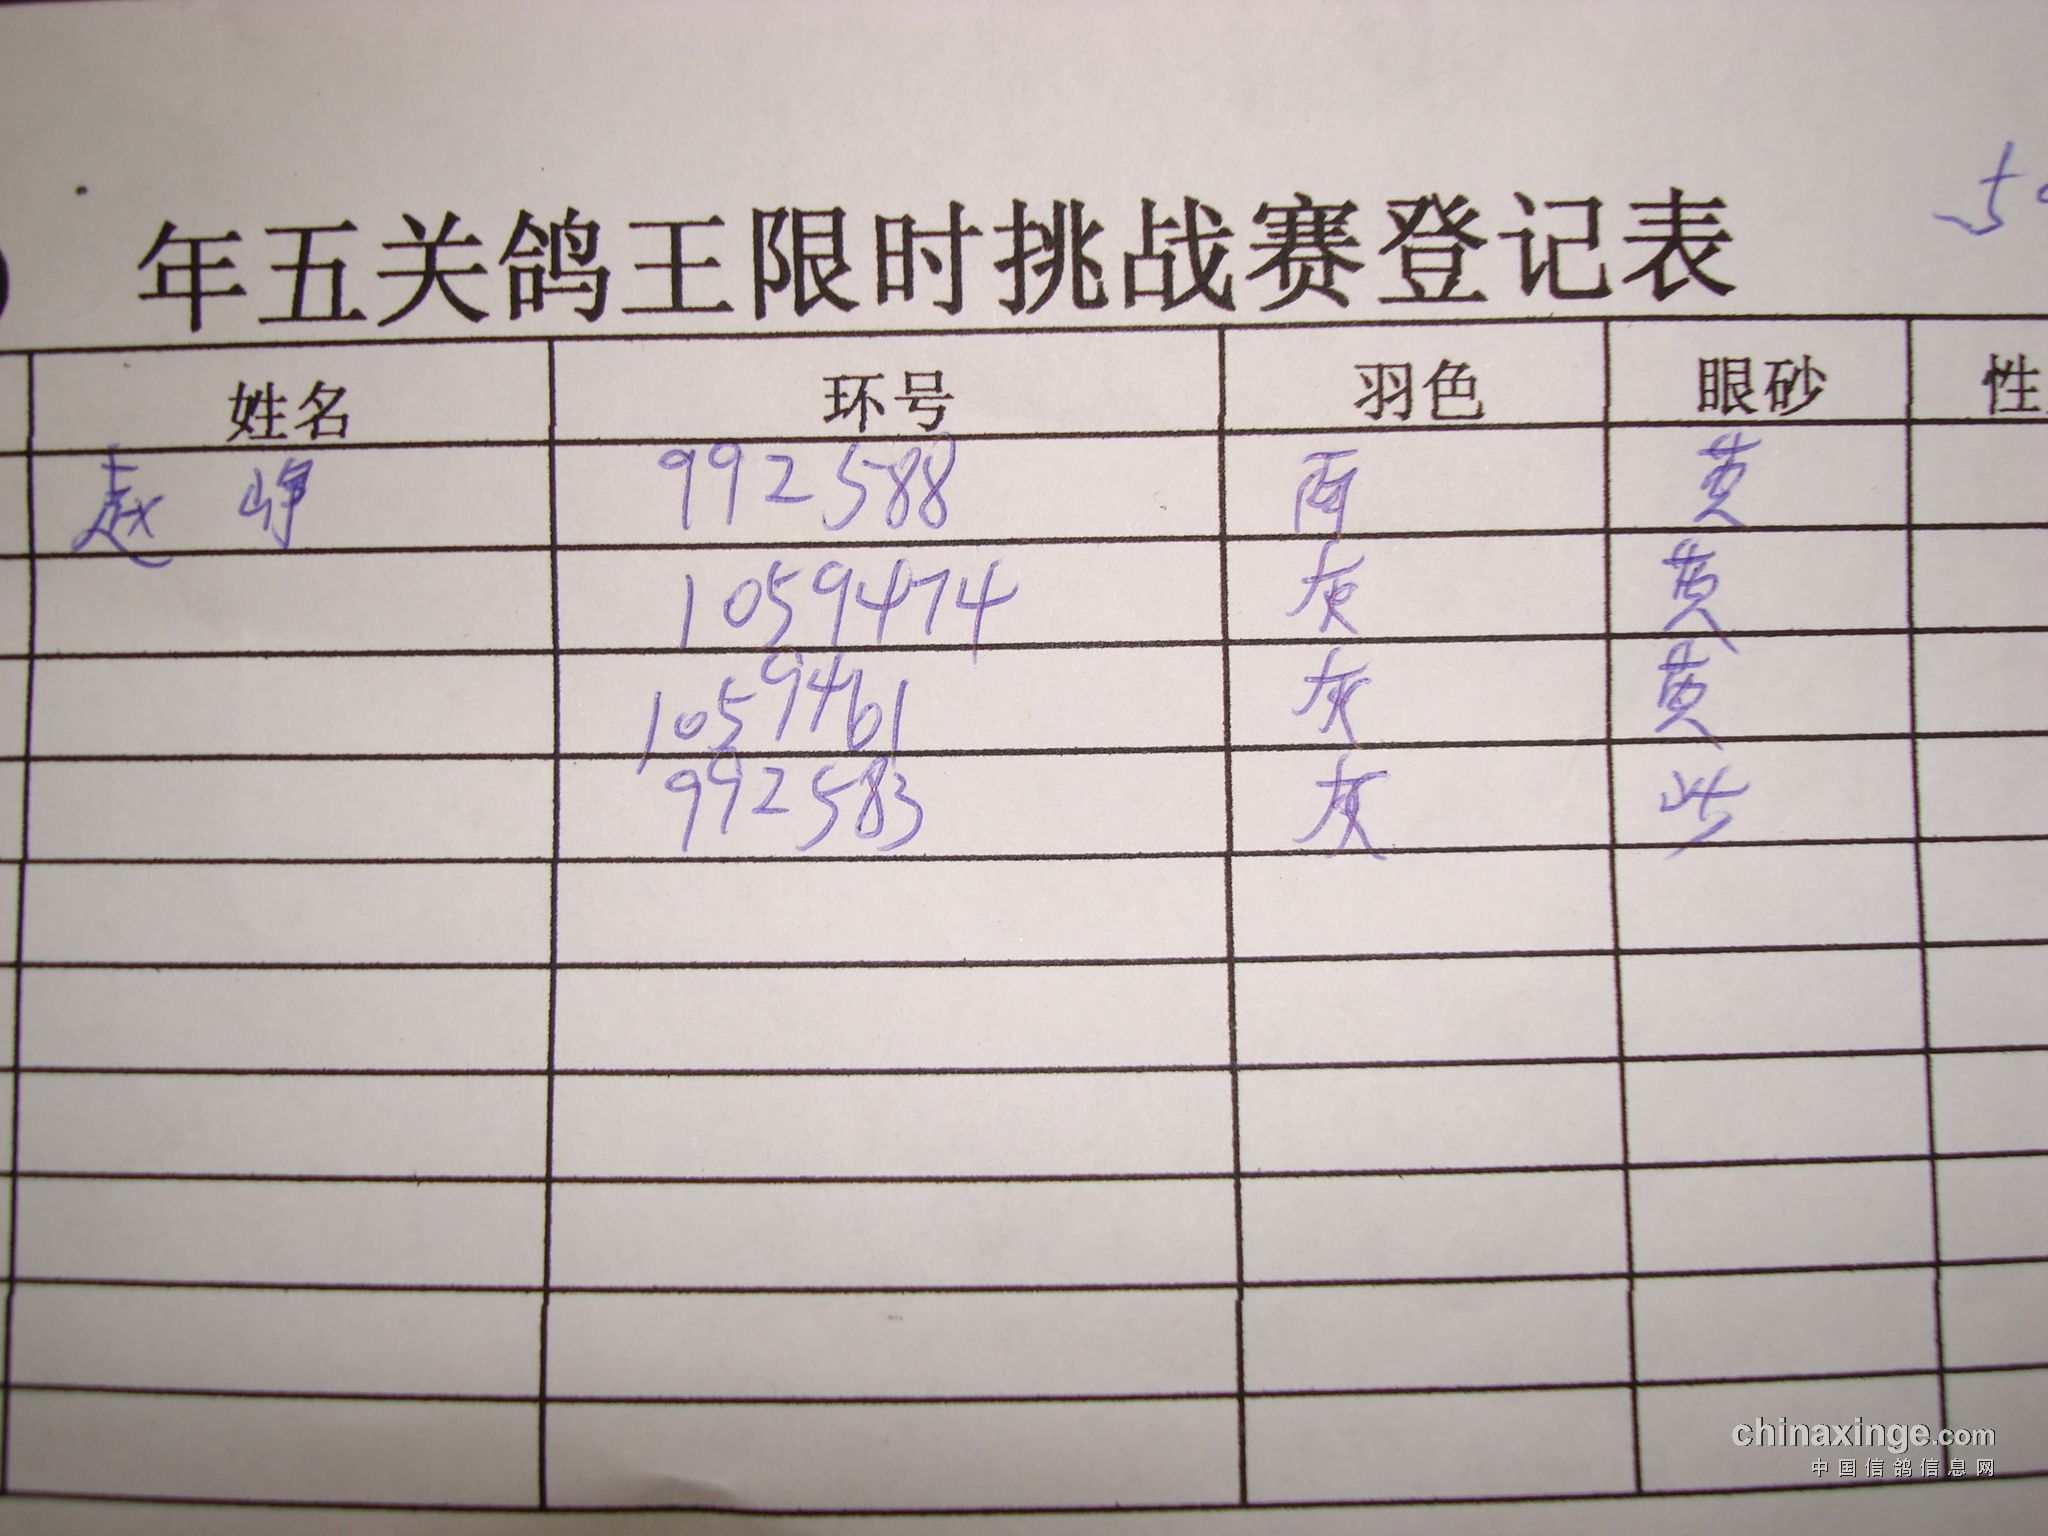 年五关鸽王限时挑战赛登记表
姓名 环号 羽色 眼砂 性
赵峥 992588 雨 黄
1059474 灰 黄
1059461 灰 黄
992583 灰
chinaxinge.com
中国信鸽信息网